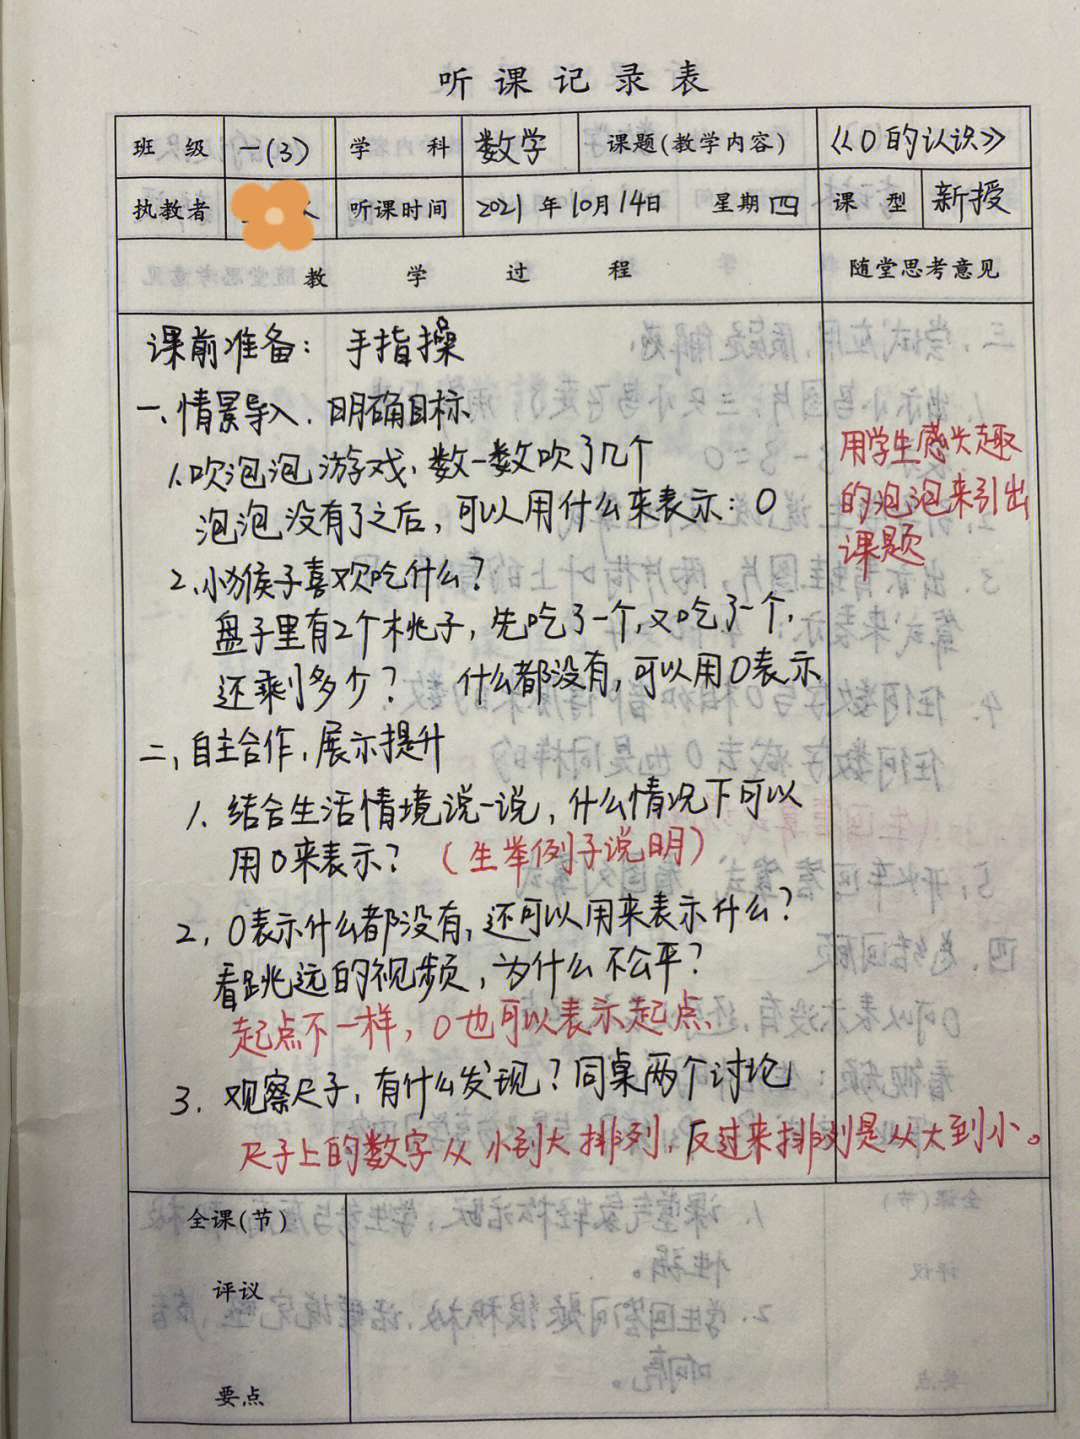 听课记录表
班级 一(3) 学科 数学 课题(教学内容) 《0的认识》
执教者 听课时间 2021年10月14日 星期四 课型 新授
教学过程 随堂思考意见
课前准备：手指操
一、情景导入、明确目标
1.吹泡泡游戏，数一数吹了几个
泡泡没有了之后，可以用什么来表示：0
用学生感兴趣
的泡泡来引出
课题
2.小猴子喜欢吃什么？
盘子里有2个桃子，先吃了一个，又吃了一个，
还剩多少？ 什么都没有，可以用0表示
二、自主合作，展示提升
1. 结合生活情境说一说，什么情况下可以
用0来表示？（生举例子说明）
2. 0表示什么都没有，还可以用来表示什么？
看跳远的视频，为什么不公平？
起点不一样，0也可以表示起点、
3. 观察尺子，有什么发现？同桌两个讨论
尺子上的数字从小到大排列，反过来排列是从大到小。
全课(节)
评议
要点